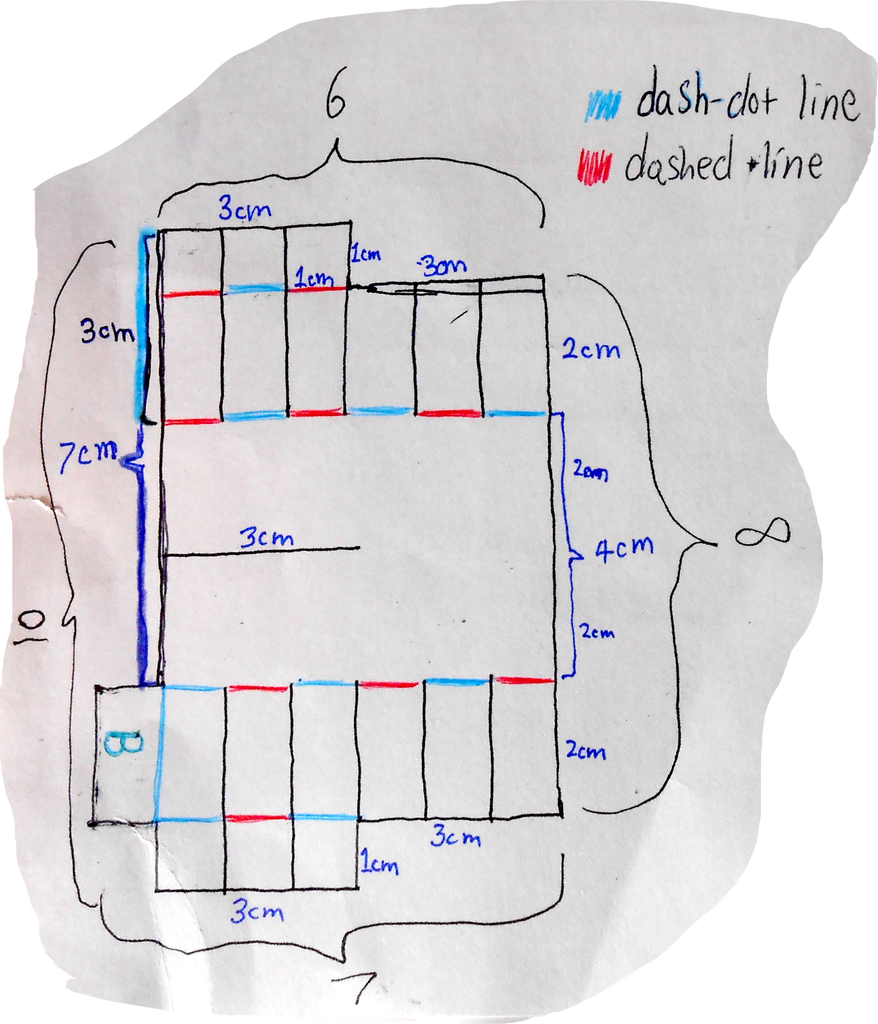 6
dash-dot line
dashed line
3cm
1cm
3cm
1cm
3cm
2cm
7cm
2cm
3cm
4cm
8
10
2cm
B
2cm
3cm
1cm
3cm
7